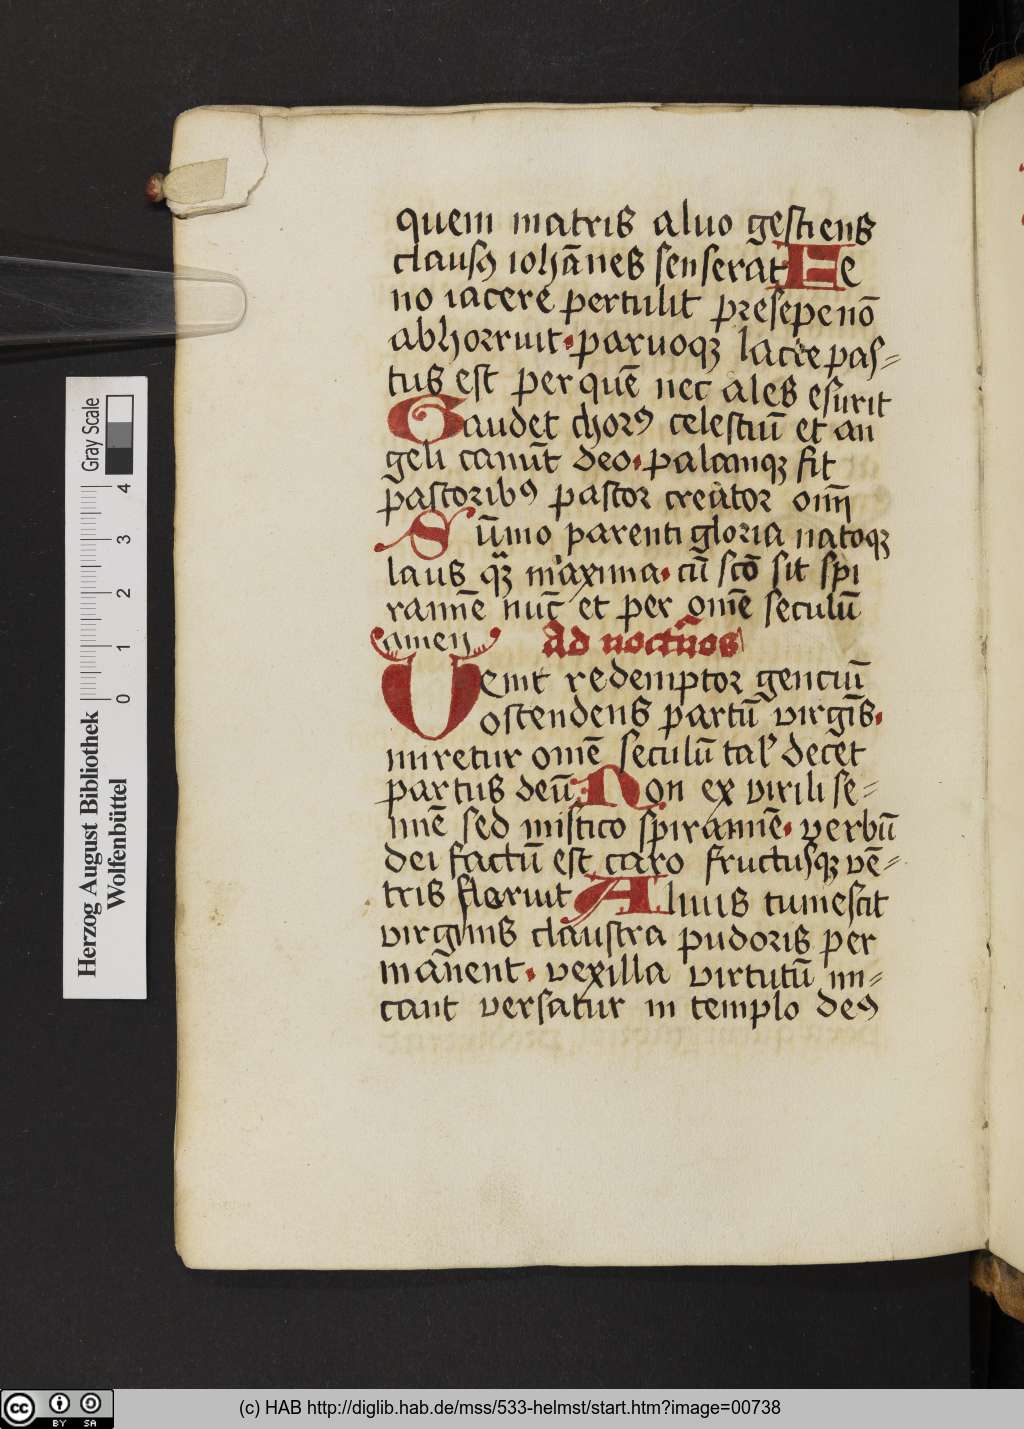 quem matris aluo gestiens
clausꝰ iohānes senserat Fe
no iacere pertulit presepe nō
abhorruit · paruoqꝫ lacte pas⸗
tus est per quē nec ales esurit
Gaudet chorꝰ celestiū et an
geli canūt deo · palamqꝫ fit
pastoribꝰ pastor creator oīm̄
Sūmo parenti gloria natoqꝫ
laus qꝫ maxima · cū scō sit spi
ramē nūc et per omē seculū
amen Ad nocturnos
Uenit redemptor genciū
ostendens partū virgīs ·
miretur omē seculū tal' decet
partus deū Non ex virili se⸗
mē sed mistico spiramē · verbū
dei factū est caro fructusqꝫ vē⸗
tris floruit Aluus tumescit
virginis claustra pudoris per
mānent · vexilla virtutū mi⸗
cant versatur in templo deꝰ
Gray Scale
0 1 2 3 4
Herzog August Bibliothek
Wolfenbüttel
cc BY SA
(c) HAB http://diglib.hab.de/mss/533-helmst/start.htm?image=00738